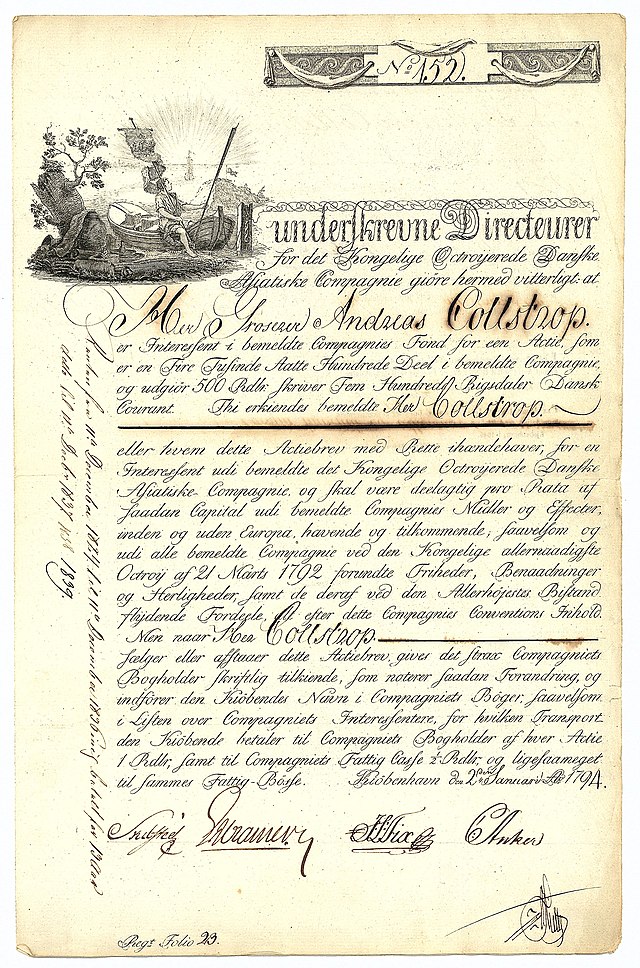 No 152.
underskrevne Directeurer
for det Kongelige Octroyerede Danske
Asiatiske Compagnie giöre hermed vitterligt: at
Herr Grosserer Andreas Collstrop.
er Interessent i bemeldte Compagnies Fond for een Actie, som
er en Fire Tusinde Aatte Hundrede Deel i bemeldte Compagnie,
og udgiör 500 Rdlr. skriver Fem Hundrede Rigsdaler Dansk
Courant. Thi erkiendes bemeldte Herr Collstrop.
eller hvem dette Actiebrev med Rette ihændehaver, for en
Interessent udi bemeldte det Kongelige Octroyerede Danske
Asiatiske Compagnie, og skal være deelagtig pro Rata af
saadan Capital udi bemeldte Compagnies Midler og Effecter,
inden og uden Europa, havende og tilkommende; saavelsom og
udi alle bemeldte Compagnie ved den Kongelige allernaadigste
Octroy af 21 Marts 1792 forundte Friheder, Benaadninger
og Herligheder, samt de deraf ved den Allerhöiestes Bistand
flydende Fordeele, alt efter dette Compagnies Conventions Inhold.
Men naar Herr Collstrop.
sælger eller afstaaer dette Actiebrev, gives det strax Compagniets
Bogholder skriftlig tilkiende, som noterer saadan Forandring, og
indförer den Kiöbendes Navn i Compagniets Böger, saavelsom
i Listen over Compagniets Interessentere, for hvilken Transport
den Kiöbende betaler til Compagniets Bogholder af hver Actie
1 Rdlr, samt til Compagniets Fattig Casse 2 Rdlr, og ligesaameget
til sammes Fattig-Bösse. Kiöbenhavn den 2den Januarii Ao 1794.
Cramer HFix CAnker
Regt Folio 23.